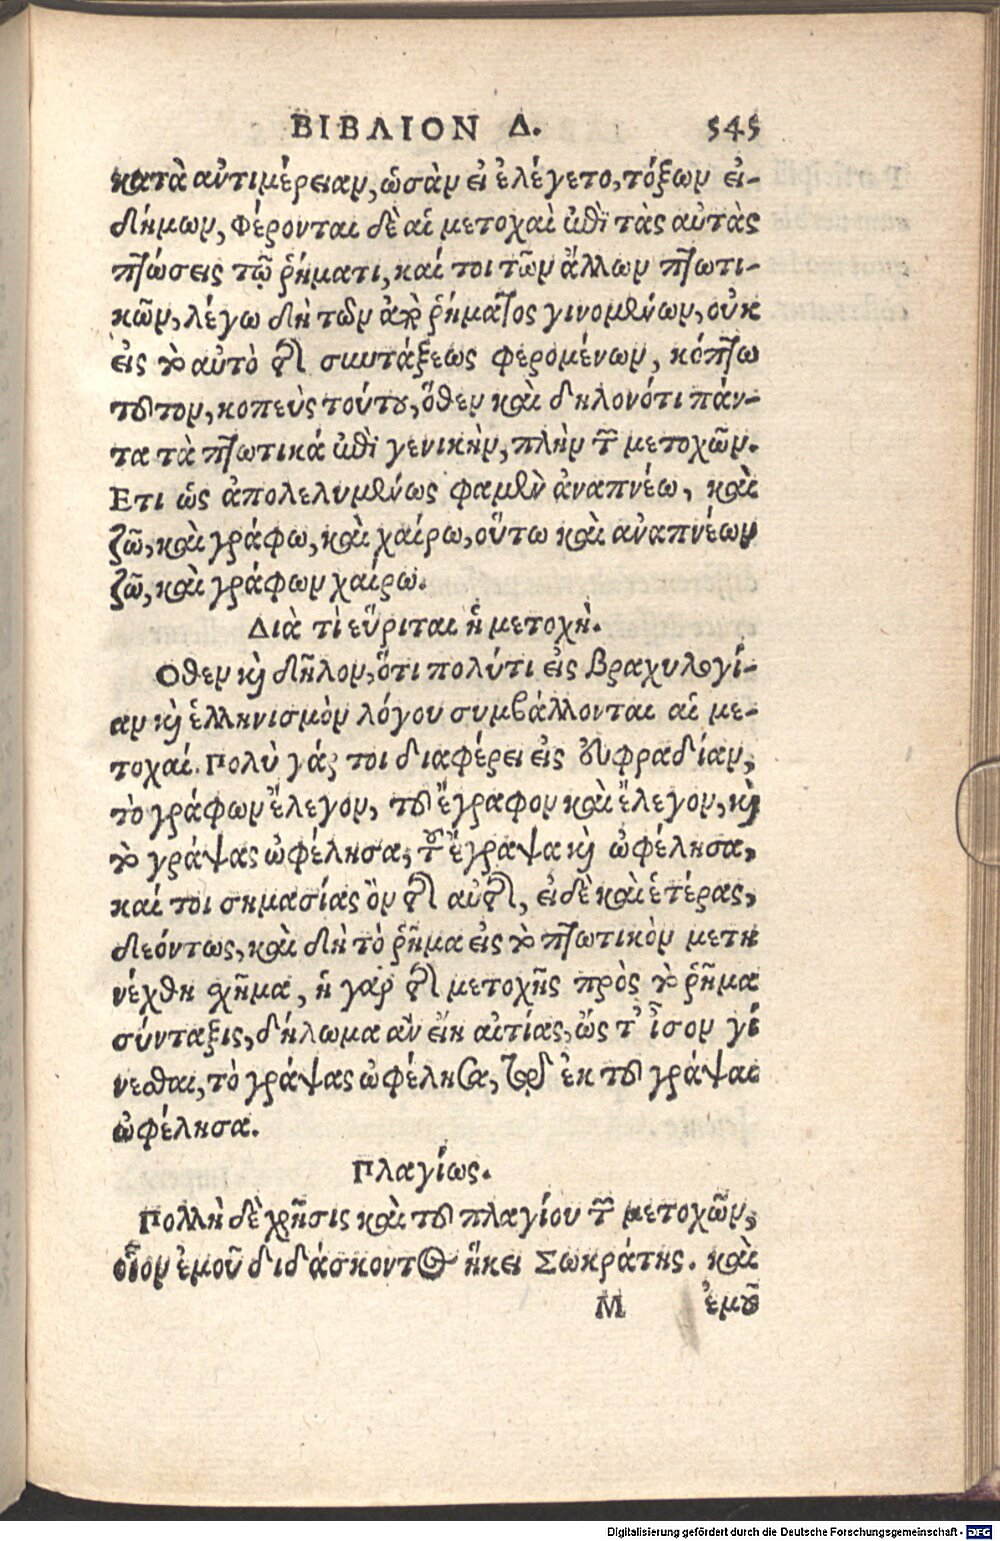 ΒΙΒΛΙΟΝ Δ. 545
κατὰ ἀντιμέρειαν, ὡσὰν εἰ ἐλέγετο, τόξων εἰ-
δήμων, Φέρονται δὲ αἱ μετοχαὶ ἐπὶ τὰς αὐτὰς
πτώσεις τῷ ῥήματι, καί τοι τῶν ἄλλων πτωτι-
κῶν, λέγω δὴ τῶν ἀπὸ ῥήματος γινομένων, οὐκ
εἰς τὸ αὐτὸ τῆς συντάξεως φερομένων, κόπτω
τοῦτον, κοπεὺς τούτου, ὅθεν καὶ δηλονότι πάν-
τα τὰ πτωτικά ἐπὶ γενικὴν, πλὴν τῶν μετοχῶν.
Ετι ὡς ἀπολελυμένως φαμὲν ἀναπνέω, καὶ
ζῶ, καὶ γράφω, καὶ χαίρω, οὕτω καὶ ἀναπνέων
ζῶ, καὶ γράφων χαίρω.
Διὰ τὶ εὕριται ἡ μετοχὴ.
Οθεν καὶ δῆλον, ὅτι πολύτι εἰς βραχυλογί-
αν καὶ ἑλληνισμὸν λόγου συμβάλλονται αἱ με-
τοχαί. Πολὺ γάρ τοι διαφέρει εἰς εὐφραδίαν,
τὸ γράφων ἔλεγον, τοῦ ἔγραφον καὶ ἔλεγον, καὶ
τὸ γράψας ὠφέλησα, τοῦ ἔγραψα καὶ ὠφέλησα,
καί τοι σημασίας ὂν τῆς αὐτῆς, εἰ δὲ καὶ ἑτέρας,
δεόντως, καὶ δὴ τὸ ῥῆμα εἰς τὸ πτωτικὸν μετη
νέχθη σχῆμα, ἡ γὰρ τῆς μετοχῆς πρὸς τὸ ῥῆμα
σύνταξις, δήλωμα ἂν εἴη αἰτίας, ὥς τ' ἴσον γί
νεσθαι, τὸ γράψας ὠφέλησα, τῷ ἐκ τοῦ γράψαι
ὠφέλησα.
Πλαγίως.
Πολλὴ δὲ χρῆσις καὶ τοῦ πλαγίου τῶν μετοχῶν,
οἷον ἐμοῦ διδάσκοντος ἥκει Σωκράτης. καὶ
M ἐμοῦ
Digitalisierung gefördert durch die Deutsche Forschungsgemeinschaft - DFG